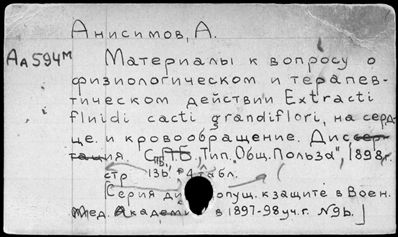 Анисимов, А.
Аа594м Материалы к вопросу о
физиологическом и терапев-
тическом действии Extracti
fluidi cacti grandiflori, на серд-
це и кровообращение. Диссер-
тация. СПБ, Тип. „Общ. Польза", 1898г.
стр 4 табл.
Серия допущ. к защите в Воен.
Мед. Академии в 1897-98 уч. г. №